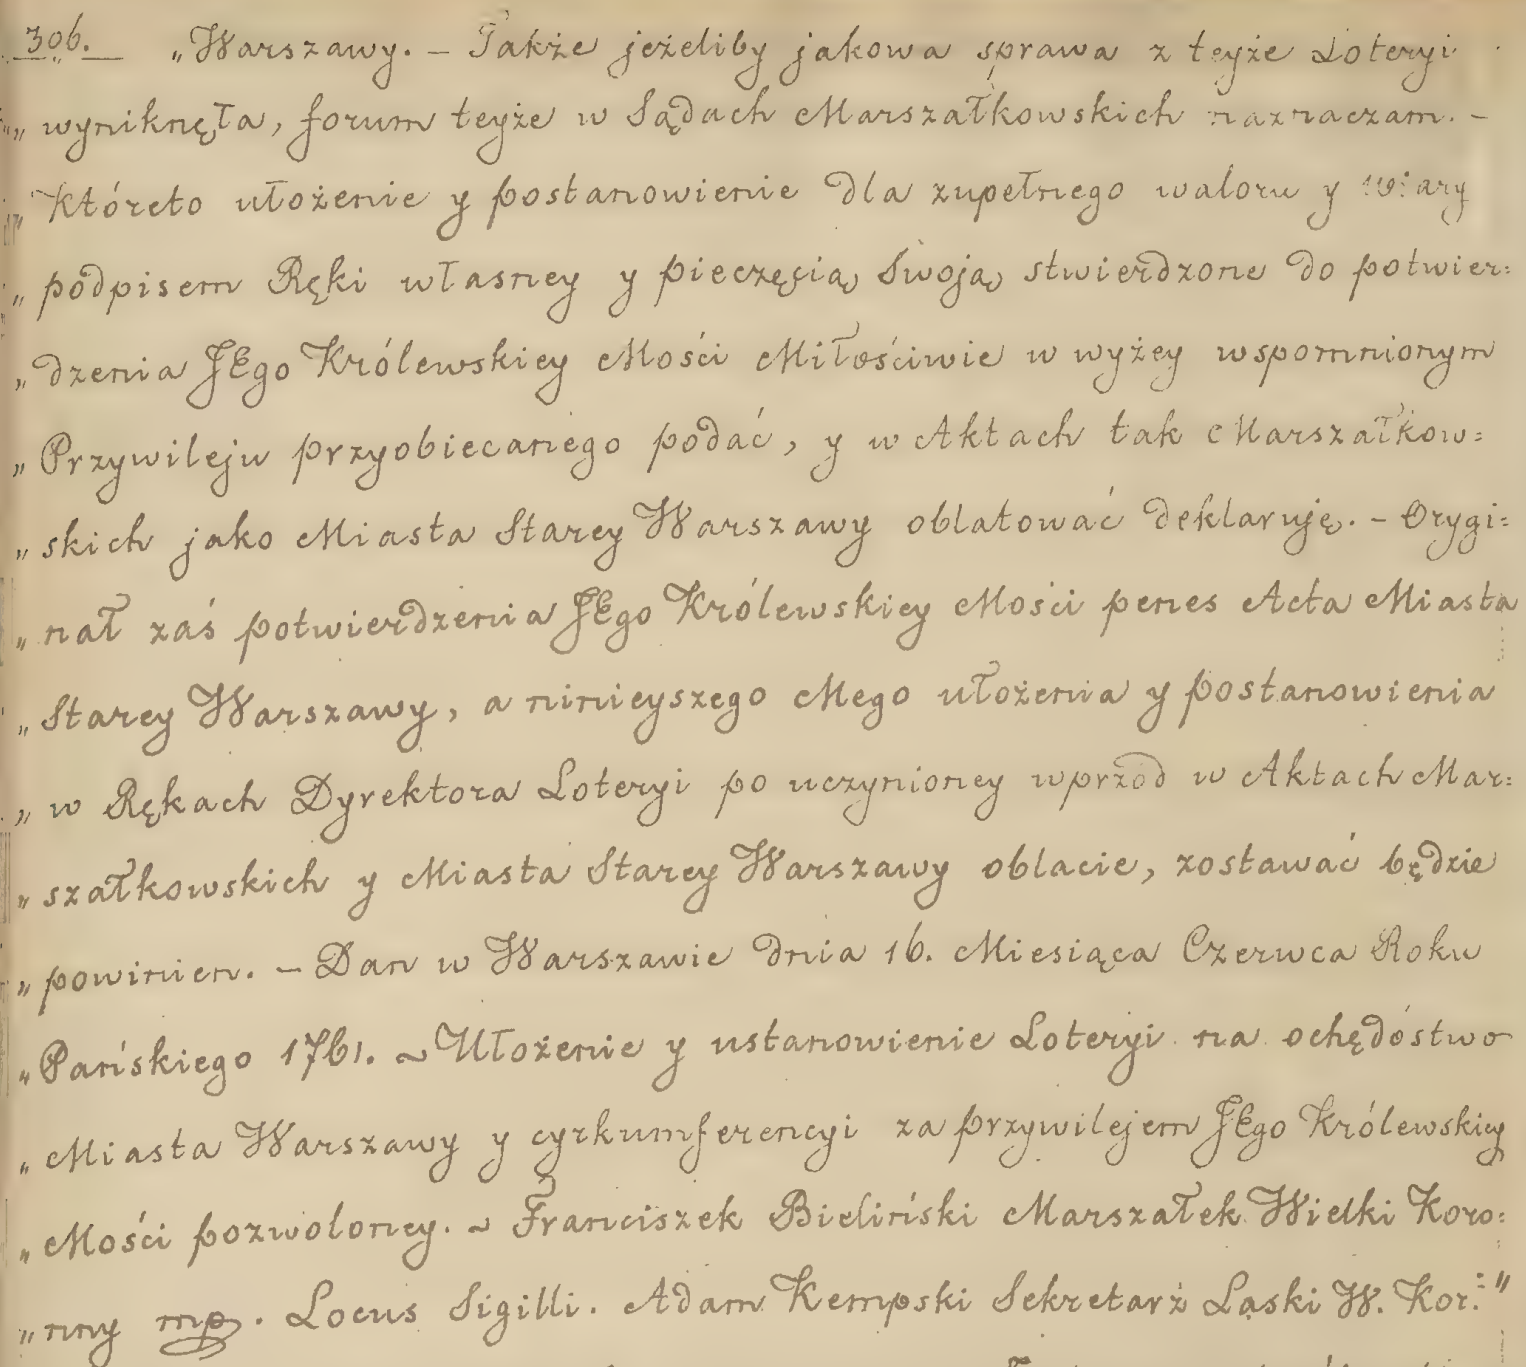 306. „Warszawy. – Także jeżeliby jakowa sprawa z teyże Loteryi
„wyniknęła, forum teyże w Sądach Marszałkowskich naznaczam. –
„któreto ułożenie y postanowienie dla zupełnego waloru y wiary
„podpisem Ręki własney y pieczęcią Swoją stwierdzone do potwier=
„dzenia JEgo Królewskiey Mości Miłościwie w wyżey wspomnionym
„Przywileju przyobiecanego podać, y w Aktach tak Marszałkow=
„skich jako Miasta Starey Warszawy oblatować deklaruję. – Orygi=
„nał zaś potwierdzenia JEgo Królewskiey Mości penes Acta Miasta
„Starey Warszawy, a ninieyszego Mego ułożenia y postanowienia
„w Rękach Dyrektora Loteryi po uczynioney wprzód w Aktach Mar=
„szałkowskich y Miasta Starey Warszawy oblacie, zostawać będzie
„powinien. – Dan w Warszawie dnia 16. Miesiąca Czerwca Roku
„Pańskiego 1761. ~ Ułożenie y ustanowienie Loteryi na ochędóstwo
„Miasta Warszawy y cyrkumferencyi za przywilejem JEgo Królewskiey
„Mości pozwoloney. ~ Franciszek Bieliński Marszałek Wielki Koro=
„nny mp. Locus Sigilli. Adam Kempski Sekretarz Laski W. Kor.="